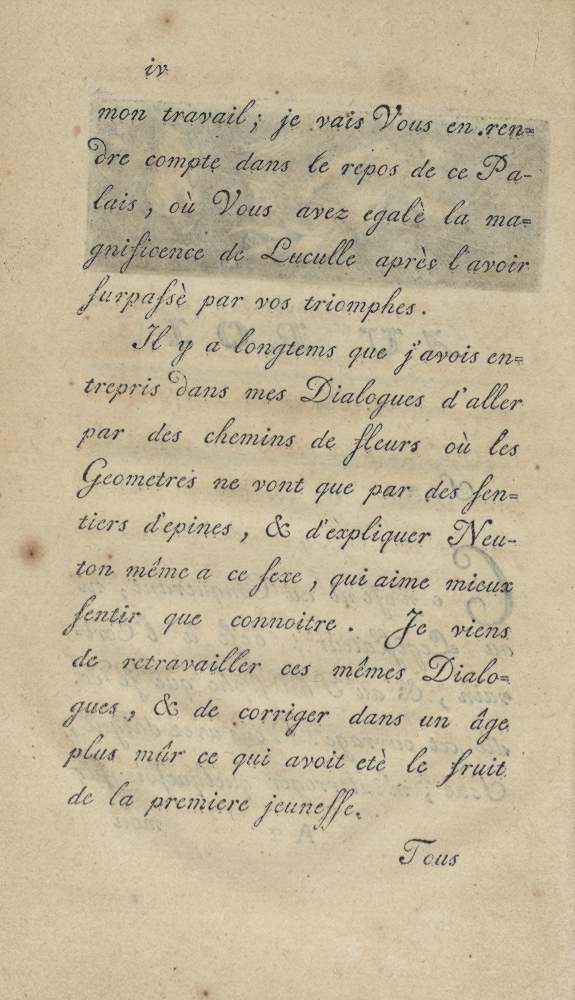 iv
mon travail; je vais Vous en ren=
dre compte dans le repos de ce Pa-
lais, où Vous avez egalè la ma=
gnificence de Luculle après l'avoir
surpaſsè par vos triomphes.
Il y a longtems que j'avois en=
trepris dans mes Dialogues d'aller
par des chemins de fleurs où les
Geometres ne vont que par des ſen=
tiers d'epines, & d'expliquer Neu-
ton même a ce ſexe, qui aime mieux
ſentir que connoitre. Je viens
de retravailler ces mêmes Dialo=
gues, & de corriger dans un âge
plus mûr ce qui avoit etè le fruit
de la premiere jeuneſſe.
Tous